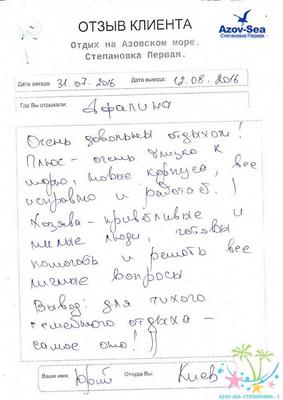 ОТЗЫВ КЛИЕНТА
Azov-Sea
Степановка Первая
Отдых на Азовском море.
Степановка Первая.
Дата заезда: 31.07.2016 Дата выезда: 12.08.2016
Где Вы отдыхали: Афалина
Очень довольны отдыхом!
Плюс - очень близко к
морю, новые корпуса, все
исправно и работает!
Хозяева - приветливые и
милые люди, готовы
помогать и решать все
личные вопросы
Вывод: для тихого
семейного отдыха -
самое оно! ))
Ваше имя: Юрий Откуда Вы: Киев
AZOV-SEA-СТЕПАНОВКА-1